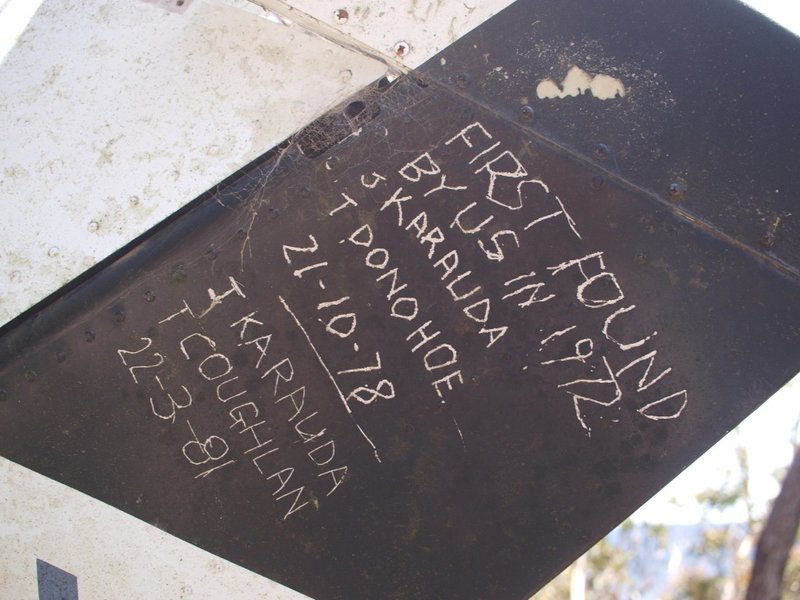 FIRST FOUND
BY US IN 1972
J KARAUDA
T DONOHOE
21-10-78
I KARAUDA
T COUGHLAN
22-3-81